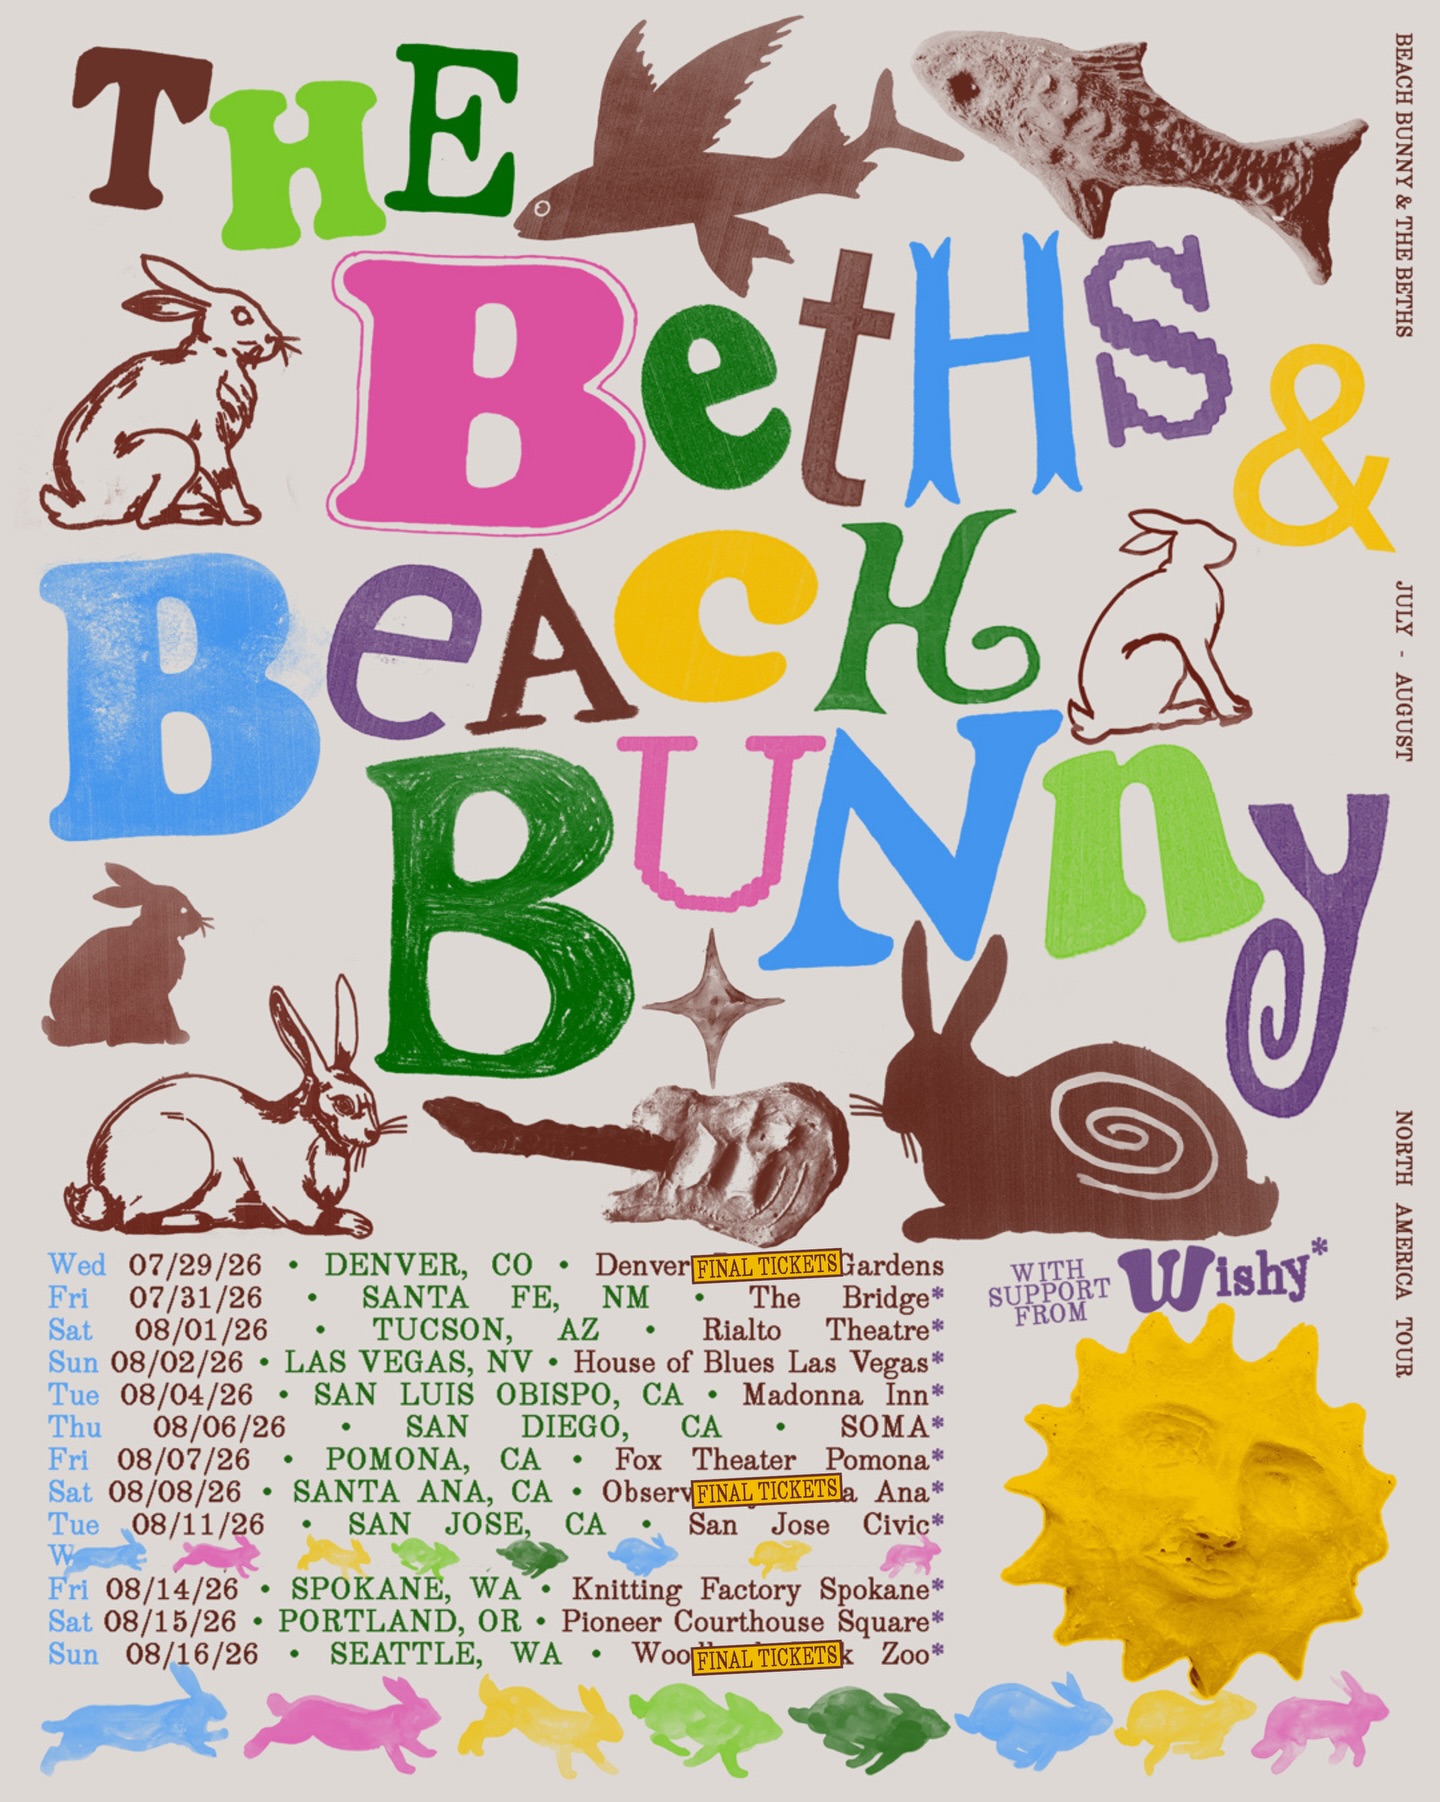 THE
BetHS &
BeACH
BUNny
Wed 07/29/26 • DENVER, CO • Denver FINAL TICKETS Gardens
Fri 07/31/26 • SANTA FE, NM • The Bridge*
Sat 08/01/26 • TUCSON, AZ • Rialto Theatre*
Sun 08/02/26 • LAS VEGAS, NV • House of Blues Las Vegas*
Tue 08/04/26 • SAN LUIS OBISPO, CA • Madonna Inn*
Thu 08/06/26 • SAN DIEGO, CA • SOMA*
Fri 08/07/26 • POMONA, CA • Fox Theater Pomona*
Sat 08/08/26 • SANTA ANA, CA • FINAL TICKETS Ana*
Tue 08/11/26 • SAN JOSE, CA • San Jose Civic*
Fri 08/14/26 • SPOKANE, WA • Knitting Factory Spokane*
Sat 08/15/26 • PORTLAND, OR • Pioneer Courthouse Square*
Sun 08/16/26 • SEATTLE, WA • FINAL TICKETS Zoo*
WITH
SUPPORT
FROM
Wishy*
BEACH BUNNY & THE BETHS
JULY - AUGUST
NORTH AMERICA TOUR